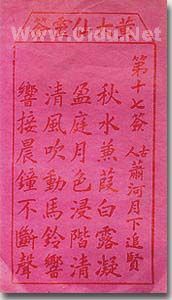 www.Cidu.Net
黃大仙靈簽
第十七簽 古人 蕭河月下追賢
秋水蒹葭白露凝
盈庭月色浸階清
清風吹動馬鈴響
響接晨鐘不斷聲